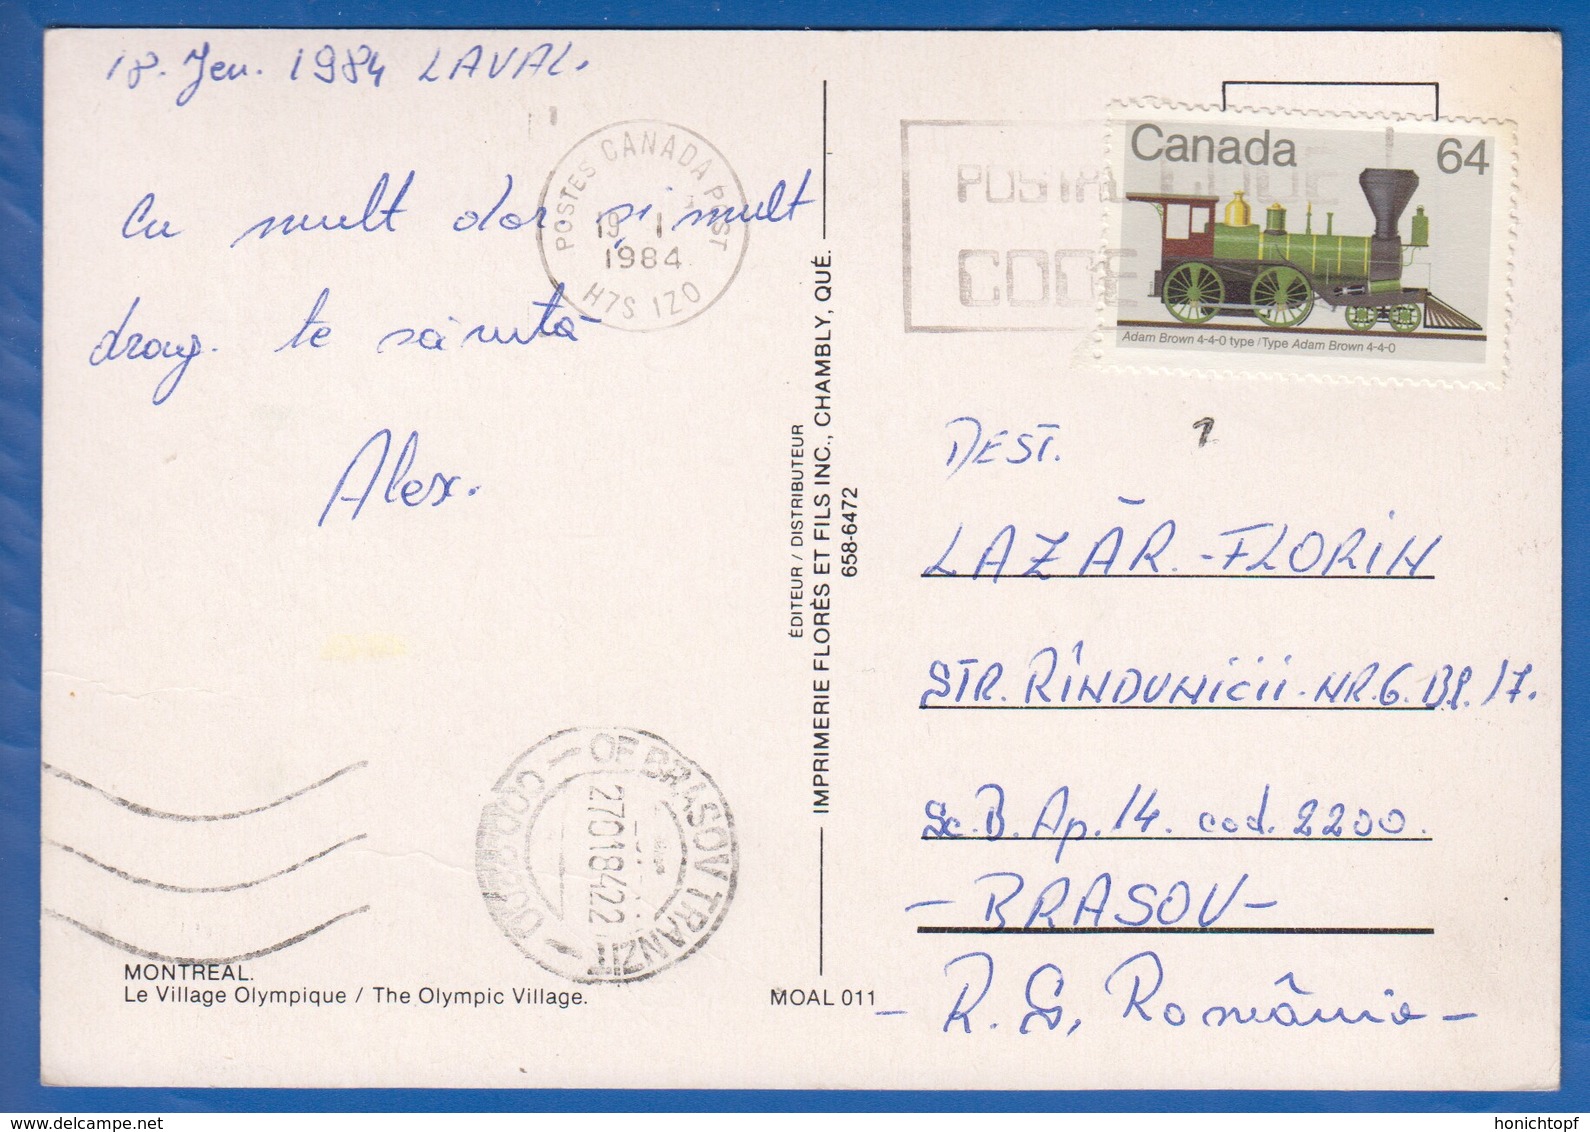 18. Jen. 1984 LAVAL.
Cu mult dor și mult
drag. te sărută
Alex.
POSTES CANADA POST
19 I
1984
H7S 1Z0
POSTAL CODE
CODE
Canada 64
Adam Brown 4-4-0 type / Type Adam Brown 4-4-0
ÉDITEUR / DISTRIBUTEUR
IMPRIMERIE FLORÈS ET FILS INC., CHAMBLY, QUÉ.
658-6472
DEST.
LAZĂR.-FLORIN
STR. RÎNDUNICII. NR.6. Bl. 17.
Sc. B. Ap. 14. cod. 2200.
- BRASOV -
- R. S. România -
OF BRASOV TRANZIT
27018422
MONTREAL.
Le Village Olympique / The Olympic Village.
MOAL 011
honichtopf